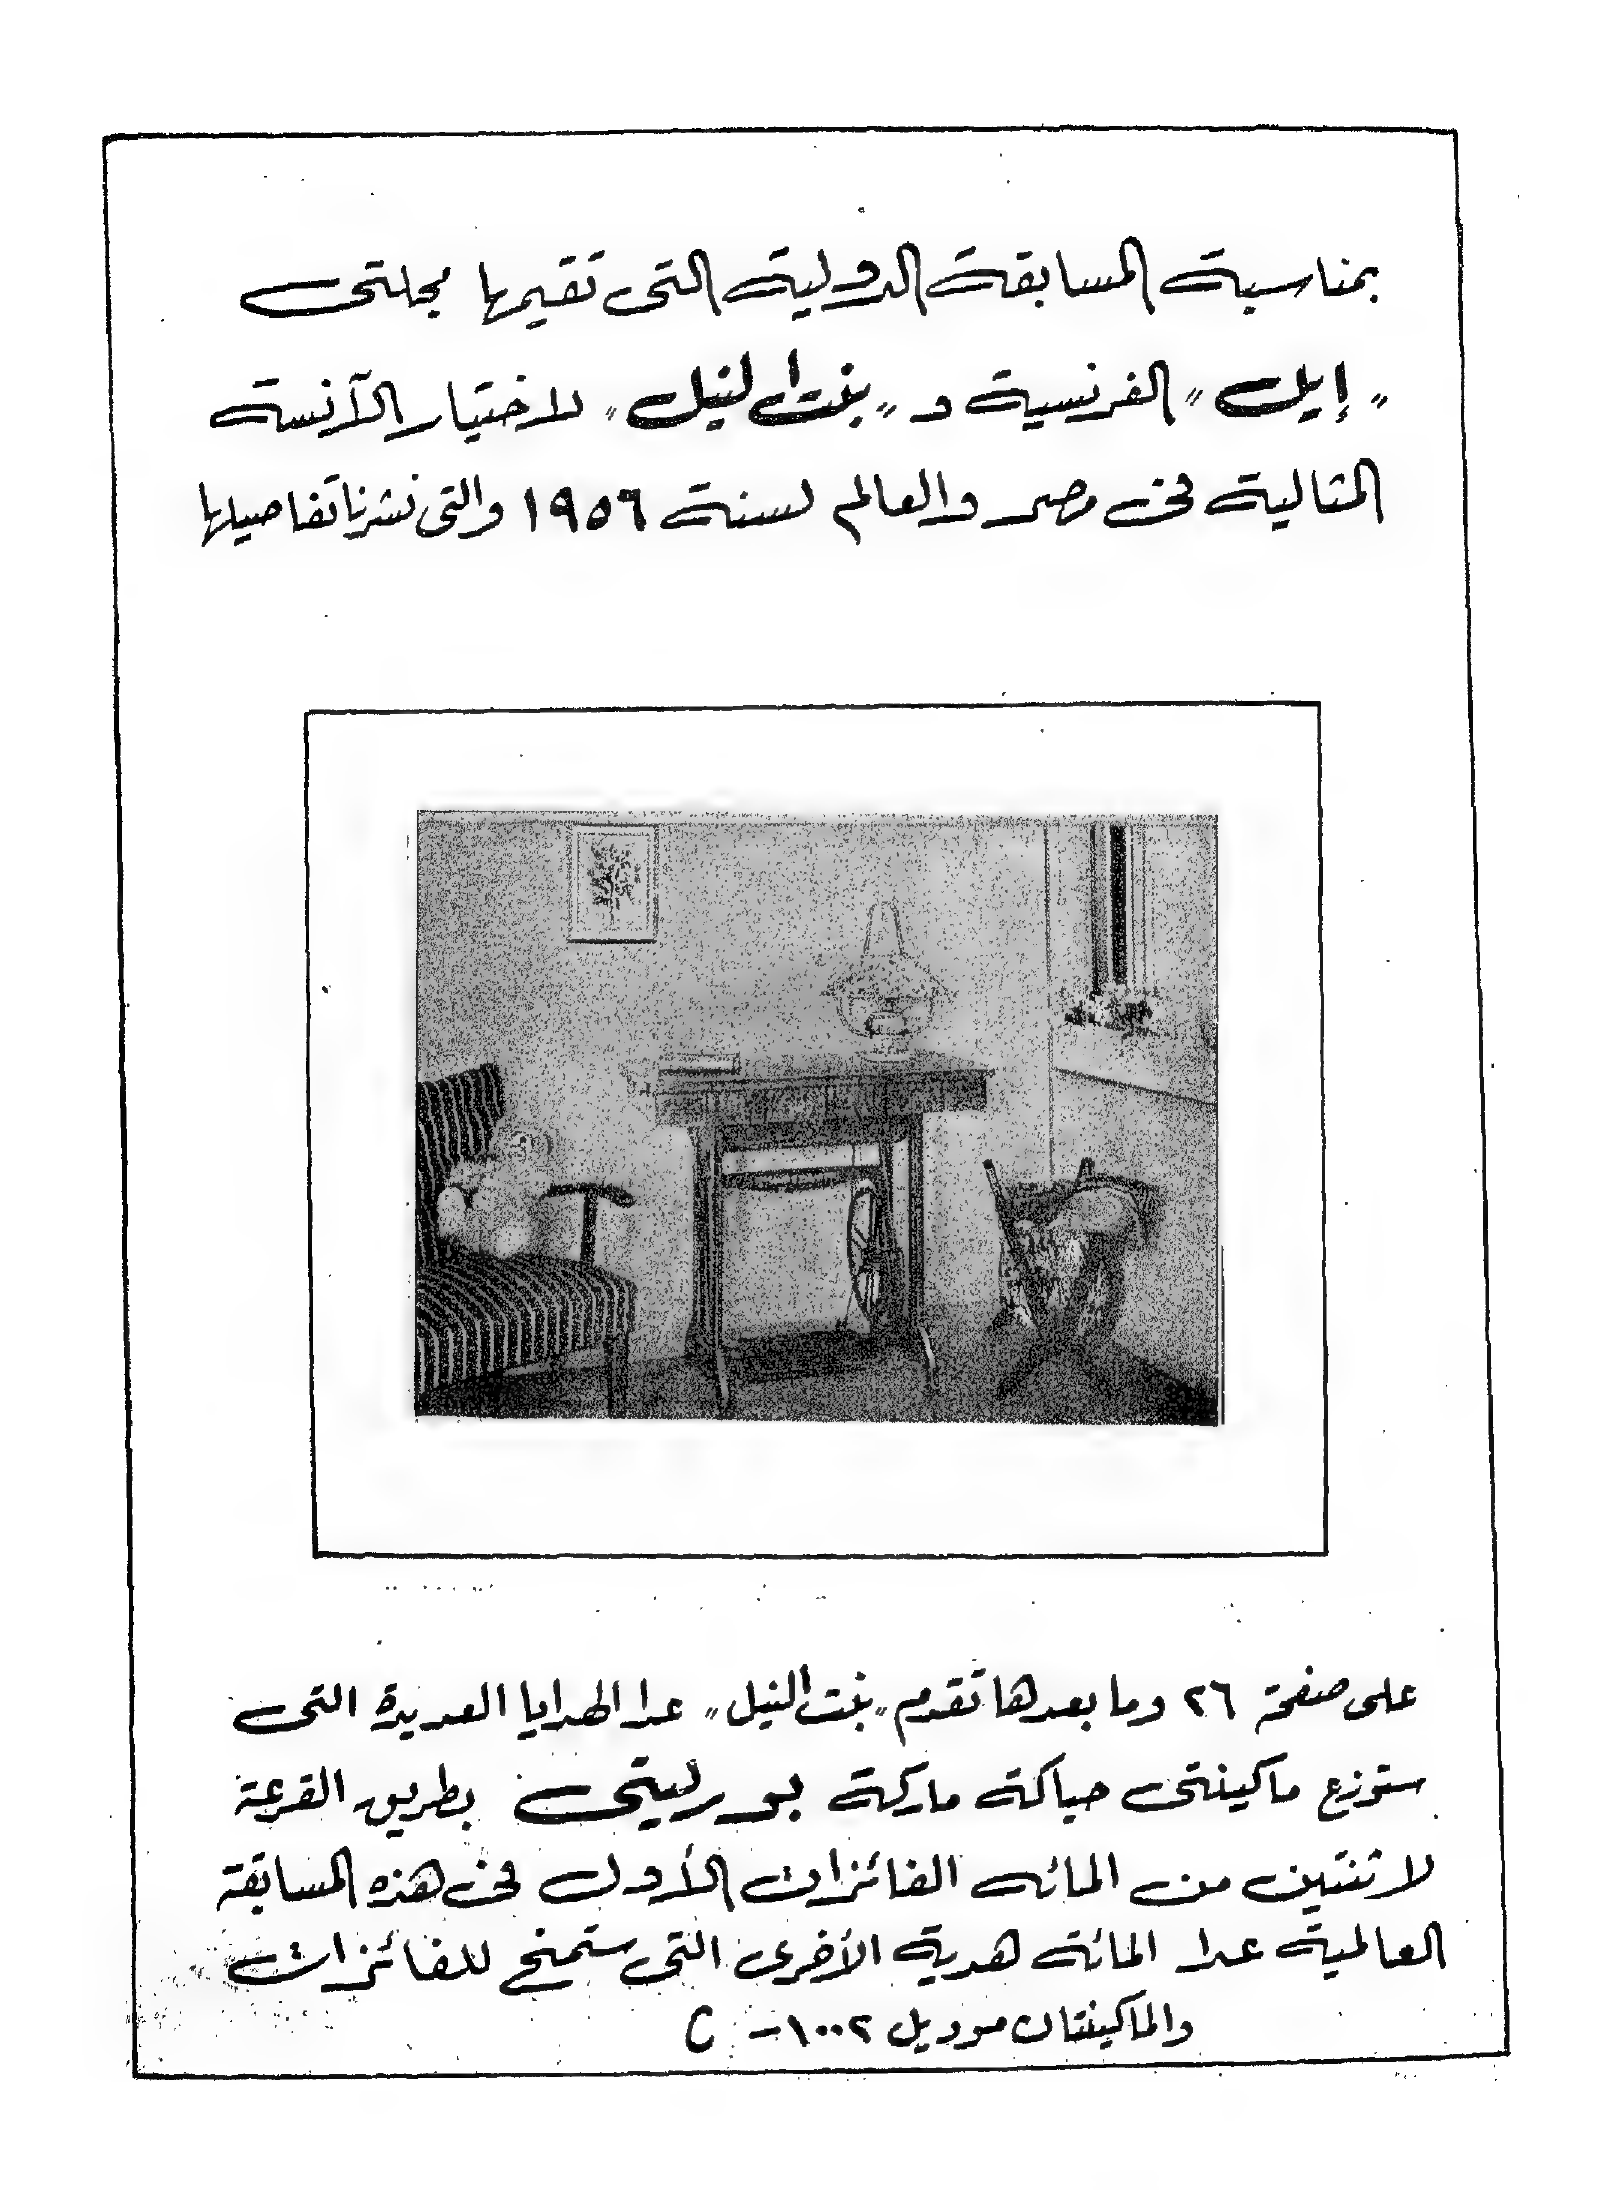 بمناسبة المسابقة الدولية التى تقيمها مجلتى
"إيل" الفرنسية و "بنت النيل" لاختيار الآنسة
المثالية فى مصر والعالم لسنة ١٩٥٦ والتى نشرنا تفاصيلها
على صفحة ٢٦ وما بعدها تقدم "بنت النيل" عدا الهدايا العديدة التى
ستوزع ماكينتى حياكة ماركة بورليتى بطريق القرعة
لاثنتين من المائه الفائزات الأول فى هذه المسابقة
العالمية عدا المائة هدية الأخرى التى ستمنح للفائزات
والماكينتان موديل ١٠٠٢ - C